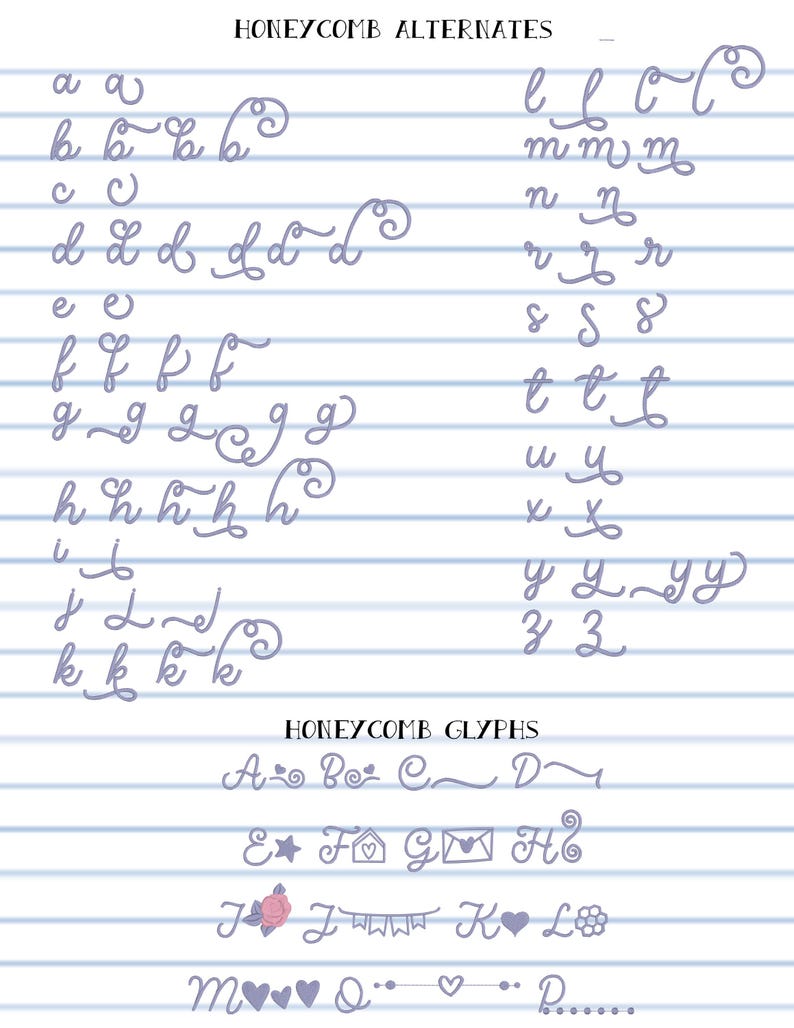 HONEYCOMB ALTERNATES
a a
b b b b
c c
d d d d d d
e e
f f f f
g g g g g
h h h h h
i i
j j j
k k k k
l l l l
m m m
n n
r r r
s s s
t t t
u u
x x
y y y y
z z
HONEYCOMB GLYPHS
A B C D
E F G H
I J K L
M O P